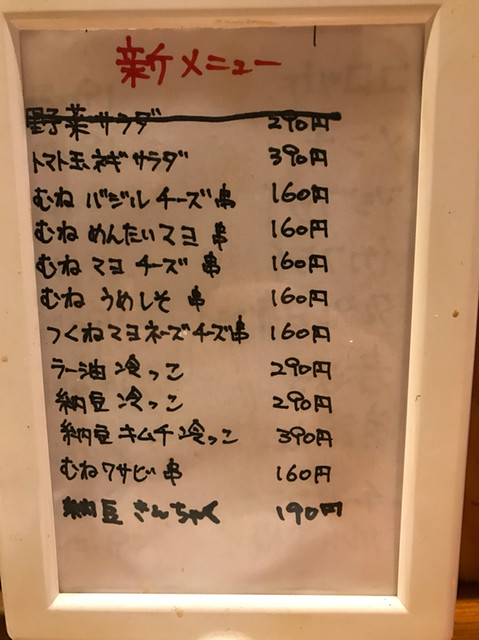 新メニュー
野菜サラダ 290円
トマト玉ネギサラダ 390円
むね バジルチーズ串 160円
むね めんたいマヨ 串 160円
むね マヨ チーズ 串 160円
むね うめしそ 串 160円
つくねマヨネーズチーズ串 160円
ラー油 冷っこ 290円
納豆 冷っこ 290円
納豆 キムチ 冷っこ 390円
むねワサビ 串 160円
納豆 きんちゃく 190円